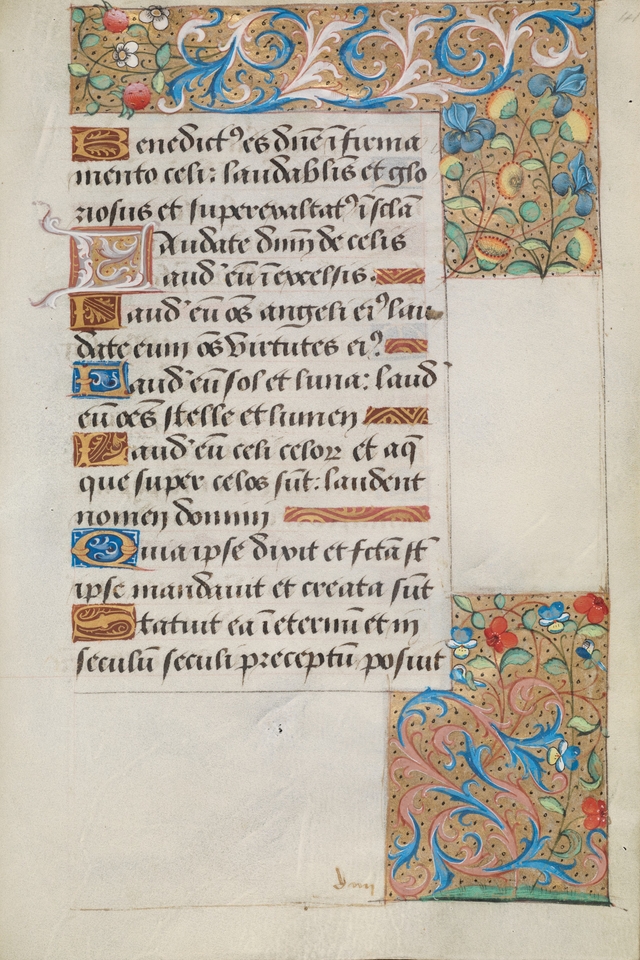 Benedictꝰ es dn̄e ī firma
mento celi: laudabl̄is et glo
riosus et superexaltatꝰ ī scl̄a
LAudate dn̄m de celis
laud' eū ī excelsis.
Laud' eū om̄s angeli eiꝰ lau
date eum om̄s virtutes eiꝰ.
Laud' eū sol et luna: laud'
eū oēs stelle et lumen
Laud' eū celi celoꝝ et aq̄
que super celos sūt: laudent
nomen domini
Quia ipse dixit et fctā sūt
ipse mandauit et creata sūt
Statuit ea ī eternū et in
seculū seculi preceptū posuit